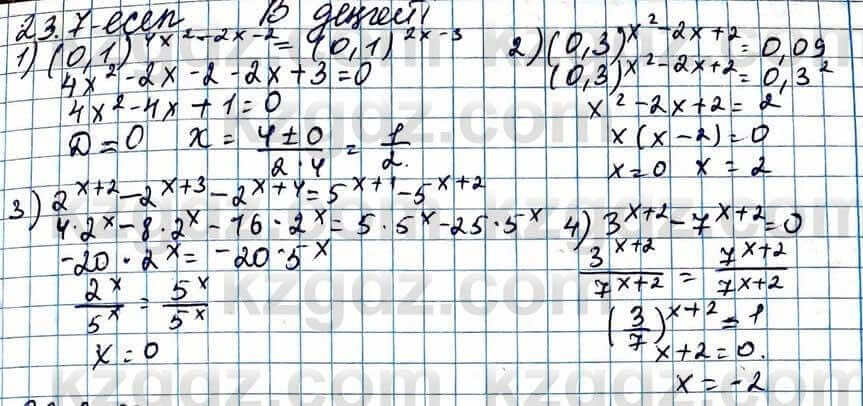 23.7-есеп В деңгейі
1) (0,1)^{4x^2-2x-2} = (0,1)^{2x-3}
4x^2-2x-2-2x+3=0
4x^2-4x+1=0
D=0 x = \frac{4±0}{2·4} = \frac{1}{2}.
2) (0,3)^{x^2-2x+2} = 0,09
(0,3)^{x^2-2x+2} = 0,3^2
x^2-2x+2=2
x(x-2)=0
x=0 x=2
3) 2^{x+2}-2^{x+3}-2^{x+4}=5^{x+1}-5^{x+2}
4·2^x-8·2^x-16·2^x=5·5^x-25·5^x
-20·2^x=-20·5^x
\frac{2^x}{5^x} = \frac{5^x}{5^x}
x=0
4) 3^{x+2}-7^{x+2}=0
\frac{3^{x+2}}{7^{x+2}} = \frac{7^{x+2}}{7^{x+2}}
(\frac{3}{7})^{x+2}=1
x+2=0.
x=-2
kzgdz.com